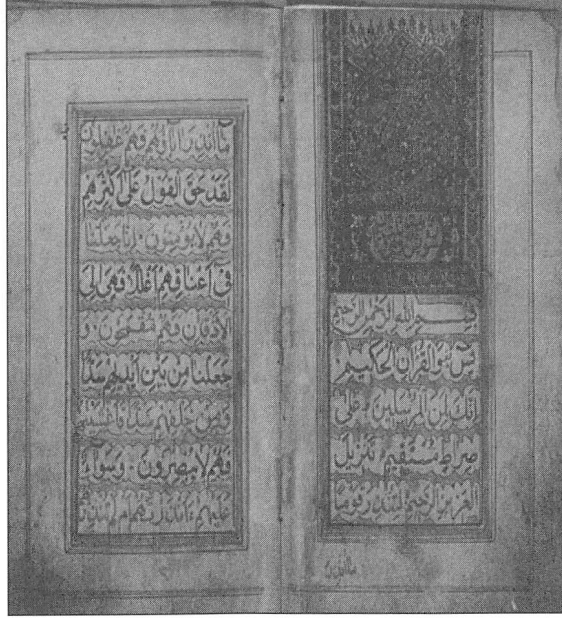 بِسْمِ اللهِ الرَّحْمٰنِ الرَّحِيمِ
يٰسٓ وَالْقُرْاٰنِ الْحَكِيمِ
اِنَّكَ لَمِنَ الْمُرْسَلِينَ عَلٰى
صِرَاطٍ مُسْتَقِيمٍ تَنْزِيلَ
الْعَزِيزِ الرَّحِيمِ لِتُنْذِرَ قَوْمًا
ما انذر
مَا اُنْذِرَ اٰبَاؤُهُمْ فَهُمْ غٰفِلُونَ
لَقَدْ حَقَّ الْقَوْلُ عَلٰى اَكْثَرِهِمْ
فَهُمْ لَا يُؤْمِنُونَ اِنَّا جَعَلْنَا
فِى اَعْنَاقِهِمْ اَغْلَالًا فَهِىَ اِلَى
الْاَذْقَانِ فَهُمْ مُقْمَحُونَ وَ
جَعَلْنَا مِنْ بَيْنِ اَيْدِيهِمْ سَدًّا
وَمِنْ خَلْفِهِمْ سَدًّا فَاَغْشَيْنٰهُمْ
فَهُمْ لَا يُبْصِرُونَ وَسَوَاءٌ
عَلَيْهِمْ ءَاَنْذَرْتَهُمْ اَمْ لَمْ تُنْذِرْ